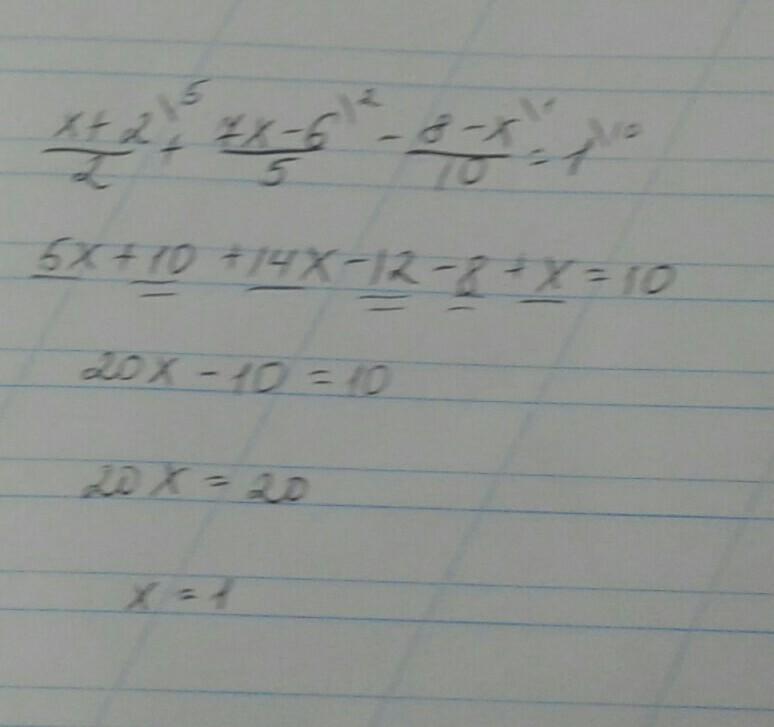 x+2\5/2 + 7x-6\2/5 - 8-x\1/10 = 1\10
5x+10 +14x-12-8+x=10
20x-10=10
20x=20
x=1